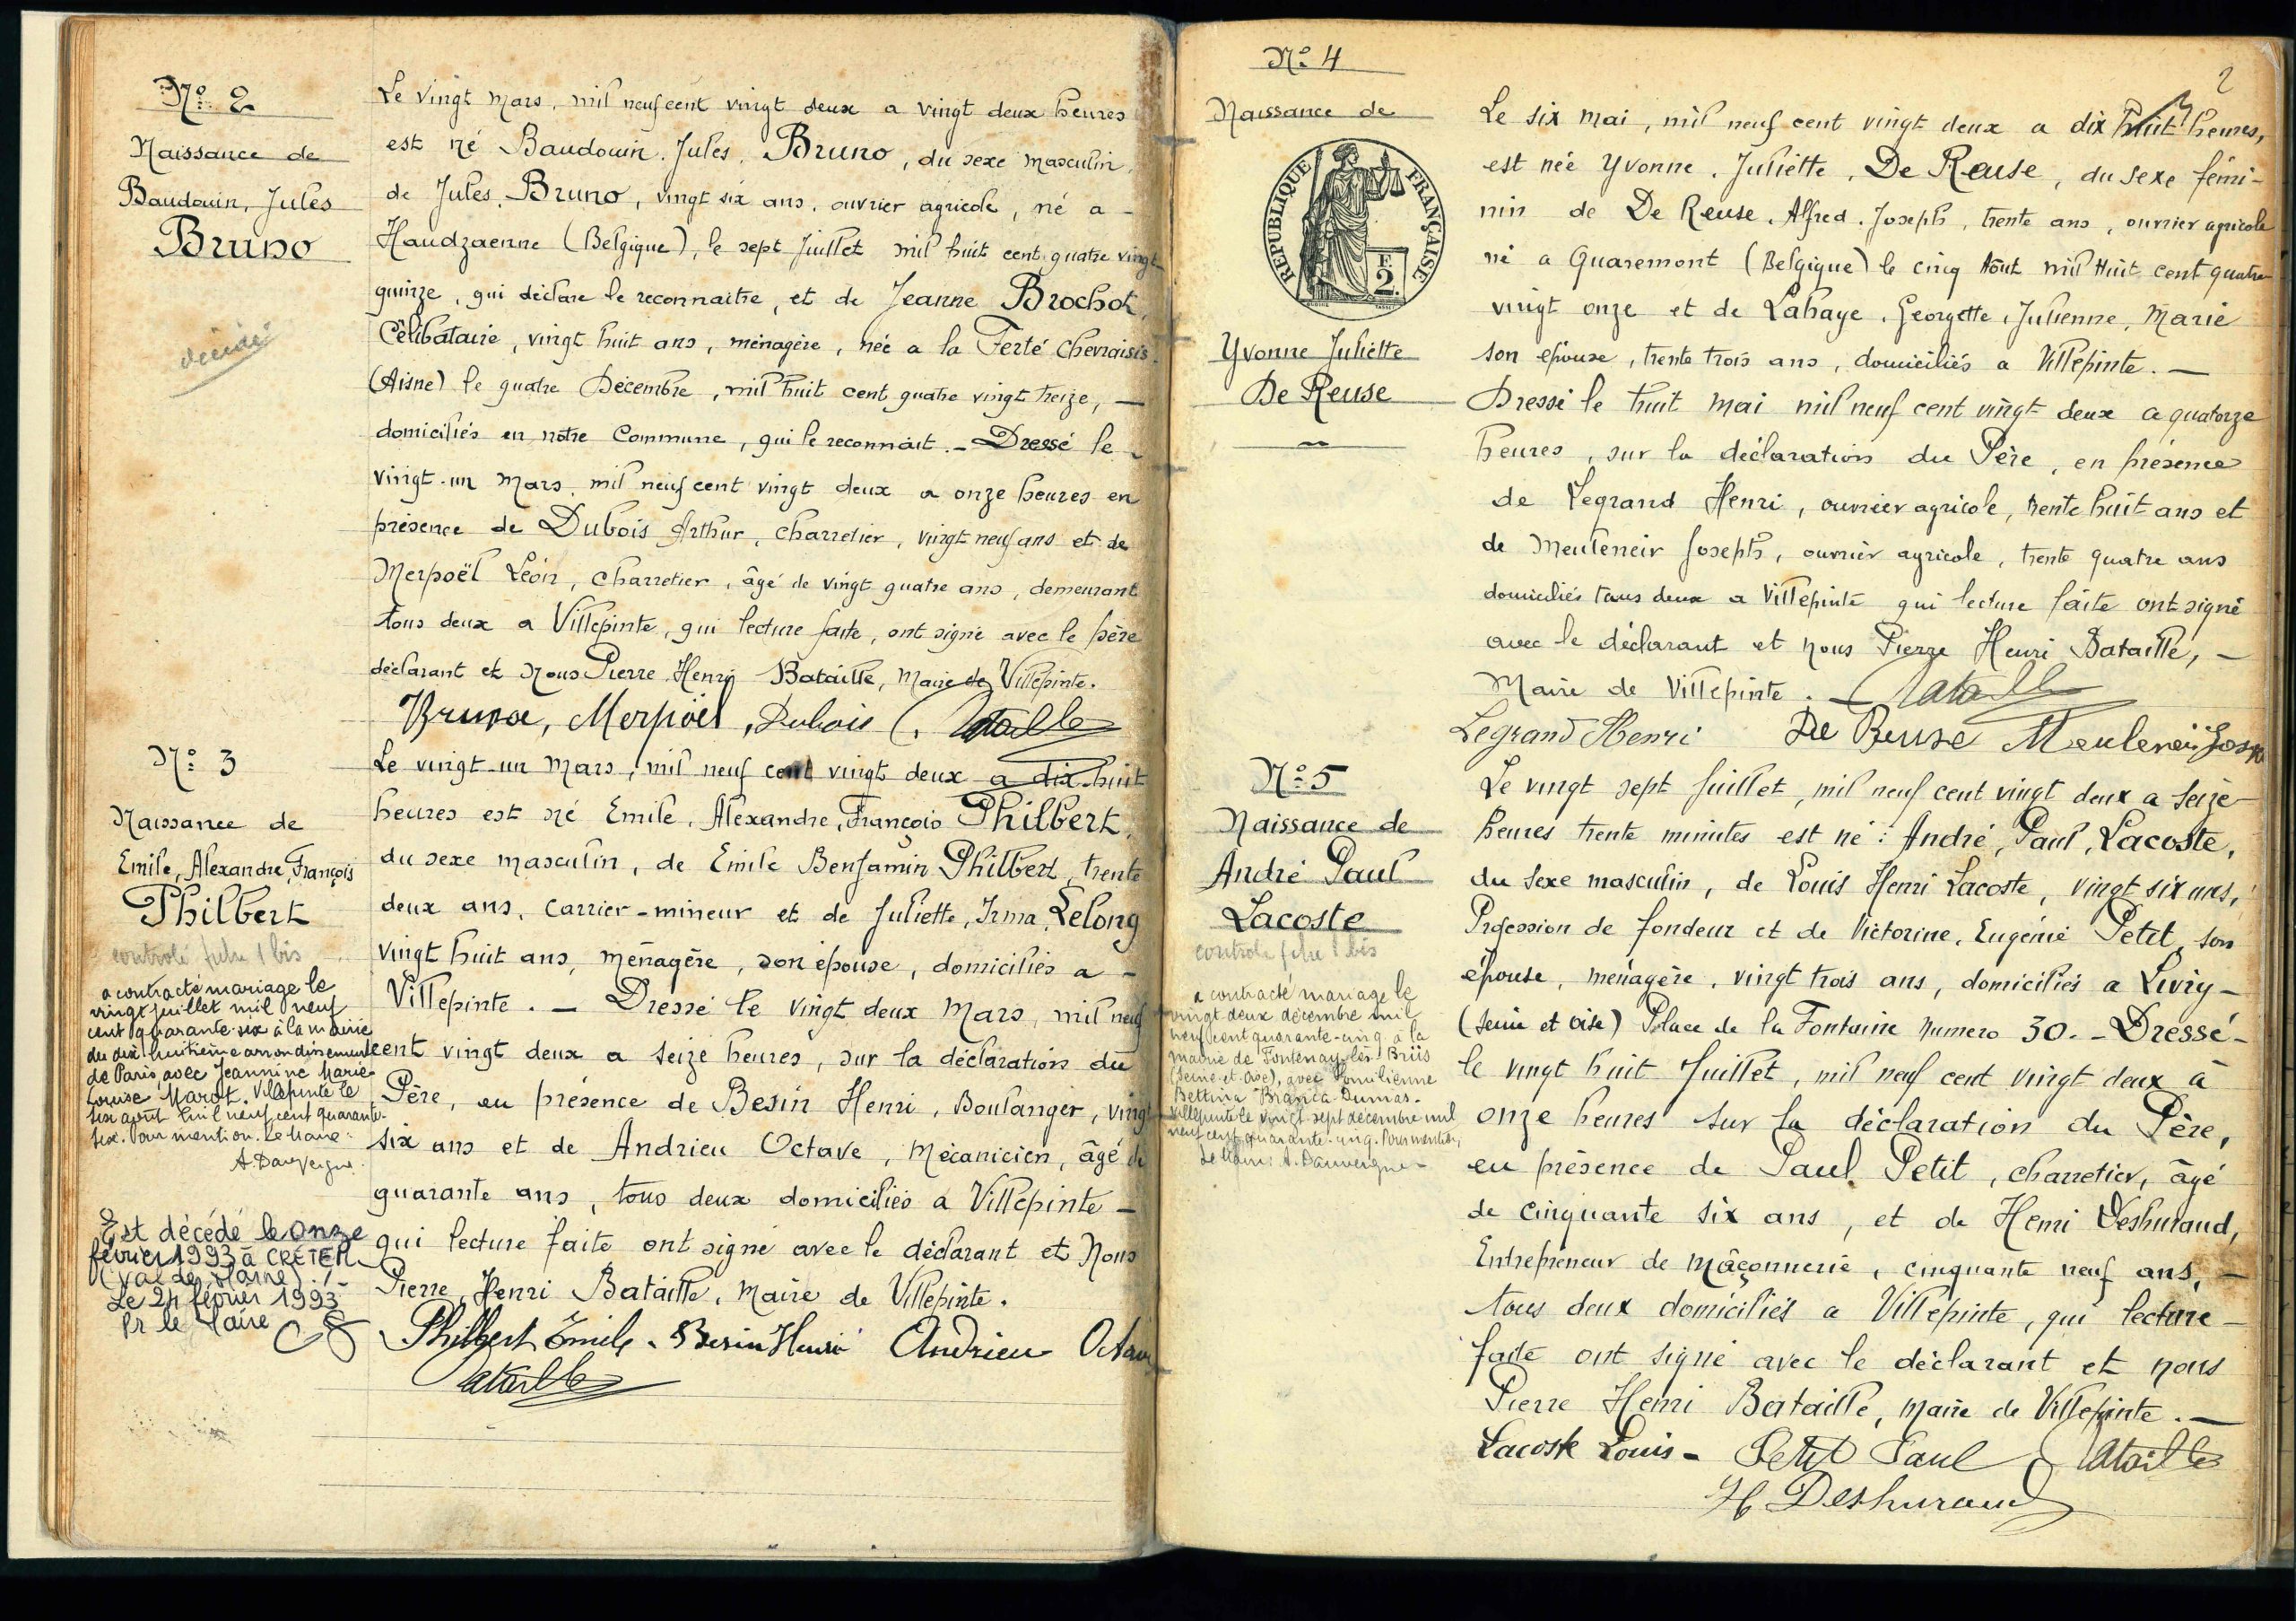 Nº 2
Naissance de
Baudouin, Jules
Bruno
décédé
Le vingt mars, mil neuf cent vingt deux a vingt deux heures
est né Baudouin. Jules. Bruno, du sexe masculin,
de Jules. Bruno, vingt six ans, ouvrier agricole, né a -
Handzaenne (Belgique), le sept Juillet mil huit cent quatre vingt
quinze, qui déclare le reconnaitre, et de Jeanne Brochot,
Célibataire, vingt huit ans, ménagère, née a la Ferté Chevraisis.
(Aisne) le quatre Décembre, mil huit cent quatre vingt treize, —
domiciliés en notre Commune, qui le reconnait. - Dressé le -
vingt-un Mars, mil neuf cent vingt deux a onze heures en
présence de Dubois Arthur, charretier, vingt neuf ans et de
Merpoël Léon, charretier, âgé de vingt quatre ans, demeurant
tous deux a Villepinte, qui lecture faite, ont signé avec le père
déclarant et Nous Pierre Henri Bataille, Maire de Villepinte.
Bruno, Merpoël, Dubois Bataille
Nº 3
Naissance de
Emile, Alexandre, François
Philbert
controlé fiche 1 bis
a contracté mariage le
vingt juillet mil neuf
cent quarante-six à la mairie
du dix-huitième arrondissement
de Paris, avec Jeannine Marie-
Louise Marot. Villepinte le
six août mil neuf cent quarante-
six. Pour mention. Le Maire :
A. Dauvergne
Est décédé le onze
février 1993 à CRÉTEIL
(Val de Marne). -
Le 24 février 1993
Pr le Maire
Le vingt-un Mars, mil neuf cent vingt deux a dix-huit
heures est né Emile. Alexandre, François Philbert,
du sexe masculin, de Emile Benjamin Philbert, trente
deux ans, carrier-mineur et de Juliette, Irma, Lelong
vingt huit ans, ménagère, son épouse, domiciliés a -
Villepinte. - Dressé le vingt deux Mars, mil neuf
cent vingt deux a seize heures, sur la déclaration du
Père, en présence de Besin Henri, Boulanger, vingt
six ans et de Andrieu Octave, Mécanicien, âgé de
quarante ans, tous deux domiciliés a Villepinte -
qui lecture faite ont signé avec le déclarant et Nous
Pierre, Henri Bataille, Maire de Villepinte.
Philbert Emile - Besin Henri Andrieu Octave
Bataille
2
Nº 4
Naissance de
RÉPUBLIQUE FRANÇAISE
F.
2.
Yvonne Juliette
De Reuse
Le six mai, mil neuf cent vingt deux a dix huit heures,
est née Yvonne. Juliette. De Reuse, du sexe fémi-
nin de De Reuse. Alfred. Joseph, trente ans, ouvrier agricole
né a Quaremont (Belgique) le cinq Août mil huit cent quatre
vingt onze et de Lahaye. Georgette. Julienne, Marie
son épouse, trente trois ans, domiciliés a Villepinte. —
Dressé le huit mai mil neuf cent vingt deux a quatorze
heures, sur la déclaration du Père, en présence
de Legrand Henri, ouvrier agricole, trente huit ans et
de Meuleneir Joseph, ouvrier agricole, trente quatre ans
domiciliés tous deux a Villepinte qui lecture faite ont signé
avec le déclarant et nous Pierre Henri Bataille, —
Maire de Villepinte. - Bataille
Legrand Henri De Reuse Meuleneir Joseph
Nº 5
Naissance de
André Paul
Lacoste
controlé fiche 1 bis
a contracté mariage le
vingt deux décembre mil
neuf cent quarante-cinq à la
mairie de Fontenay-lès-Briis
(Seine-et-Oise), avec Emilienne
Bettina Branca-Dumas.
Villepinte le vingt-sept décembre mil
neuf cent quarante-cinq. Pour mention,
Le Maire : A. Dauvergne -
Le vingt sept Juillet, mil neuf cent vingt deux a seize
heures trente minutes est né : André, Paul, Lacoste,
du sexe masculin, de Louis Henri Lacoste, vingt six ans,
Profession de fondeur et de Victorine, Eugénie Petit, son
épouse, ménagère, vingt trois ans, domiciliés a Livry -
(Seine et Oise) Place de la Fontaine numero 30. - Dressé -
le vingt huit Juillet, mil neuf cent vingt deux à
onze heures sur la déclaration du Père,
en présence de Paul Petit, charretier, âgé
de cinquante six ans, et de Henri Deshuraud,
Entrepreneur de maçonnerie, cinquante neuf ans, —
tous deux domiciliés a Villepinte, qui lecture —
faite ont signé avec le déclarant et nous
Pierre Henri Bataille, maire de Villepinte. —
Lacoste Louis - Petit Paul Bataille
H Deshuraud